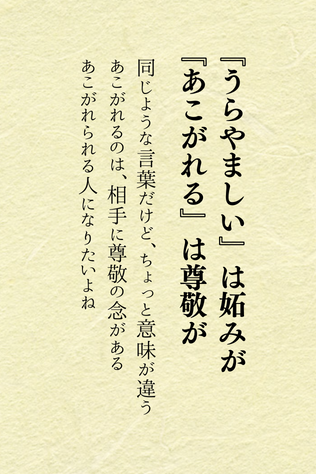 『うらやましい』は妬みが
『あこがれる』は尊敬が
同じような言葉だけど、ちょっと意味が違う
あこがれるのは、相手に尊敬の念がある
あこがれられる人になりたいよね